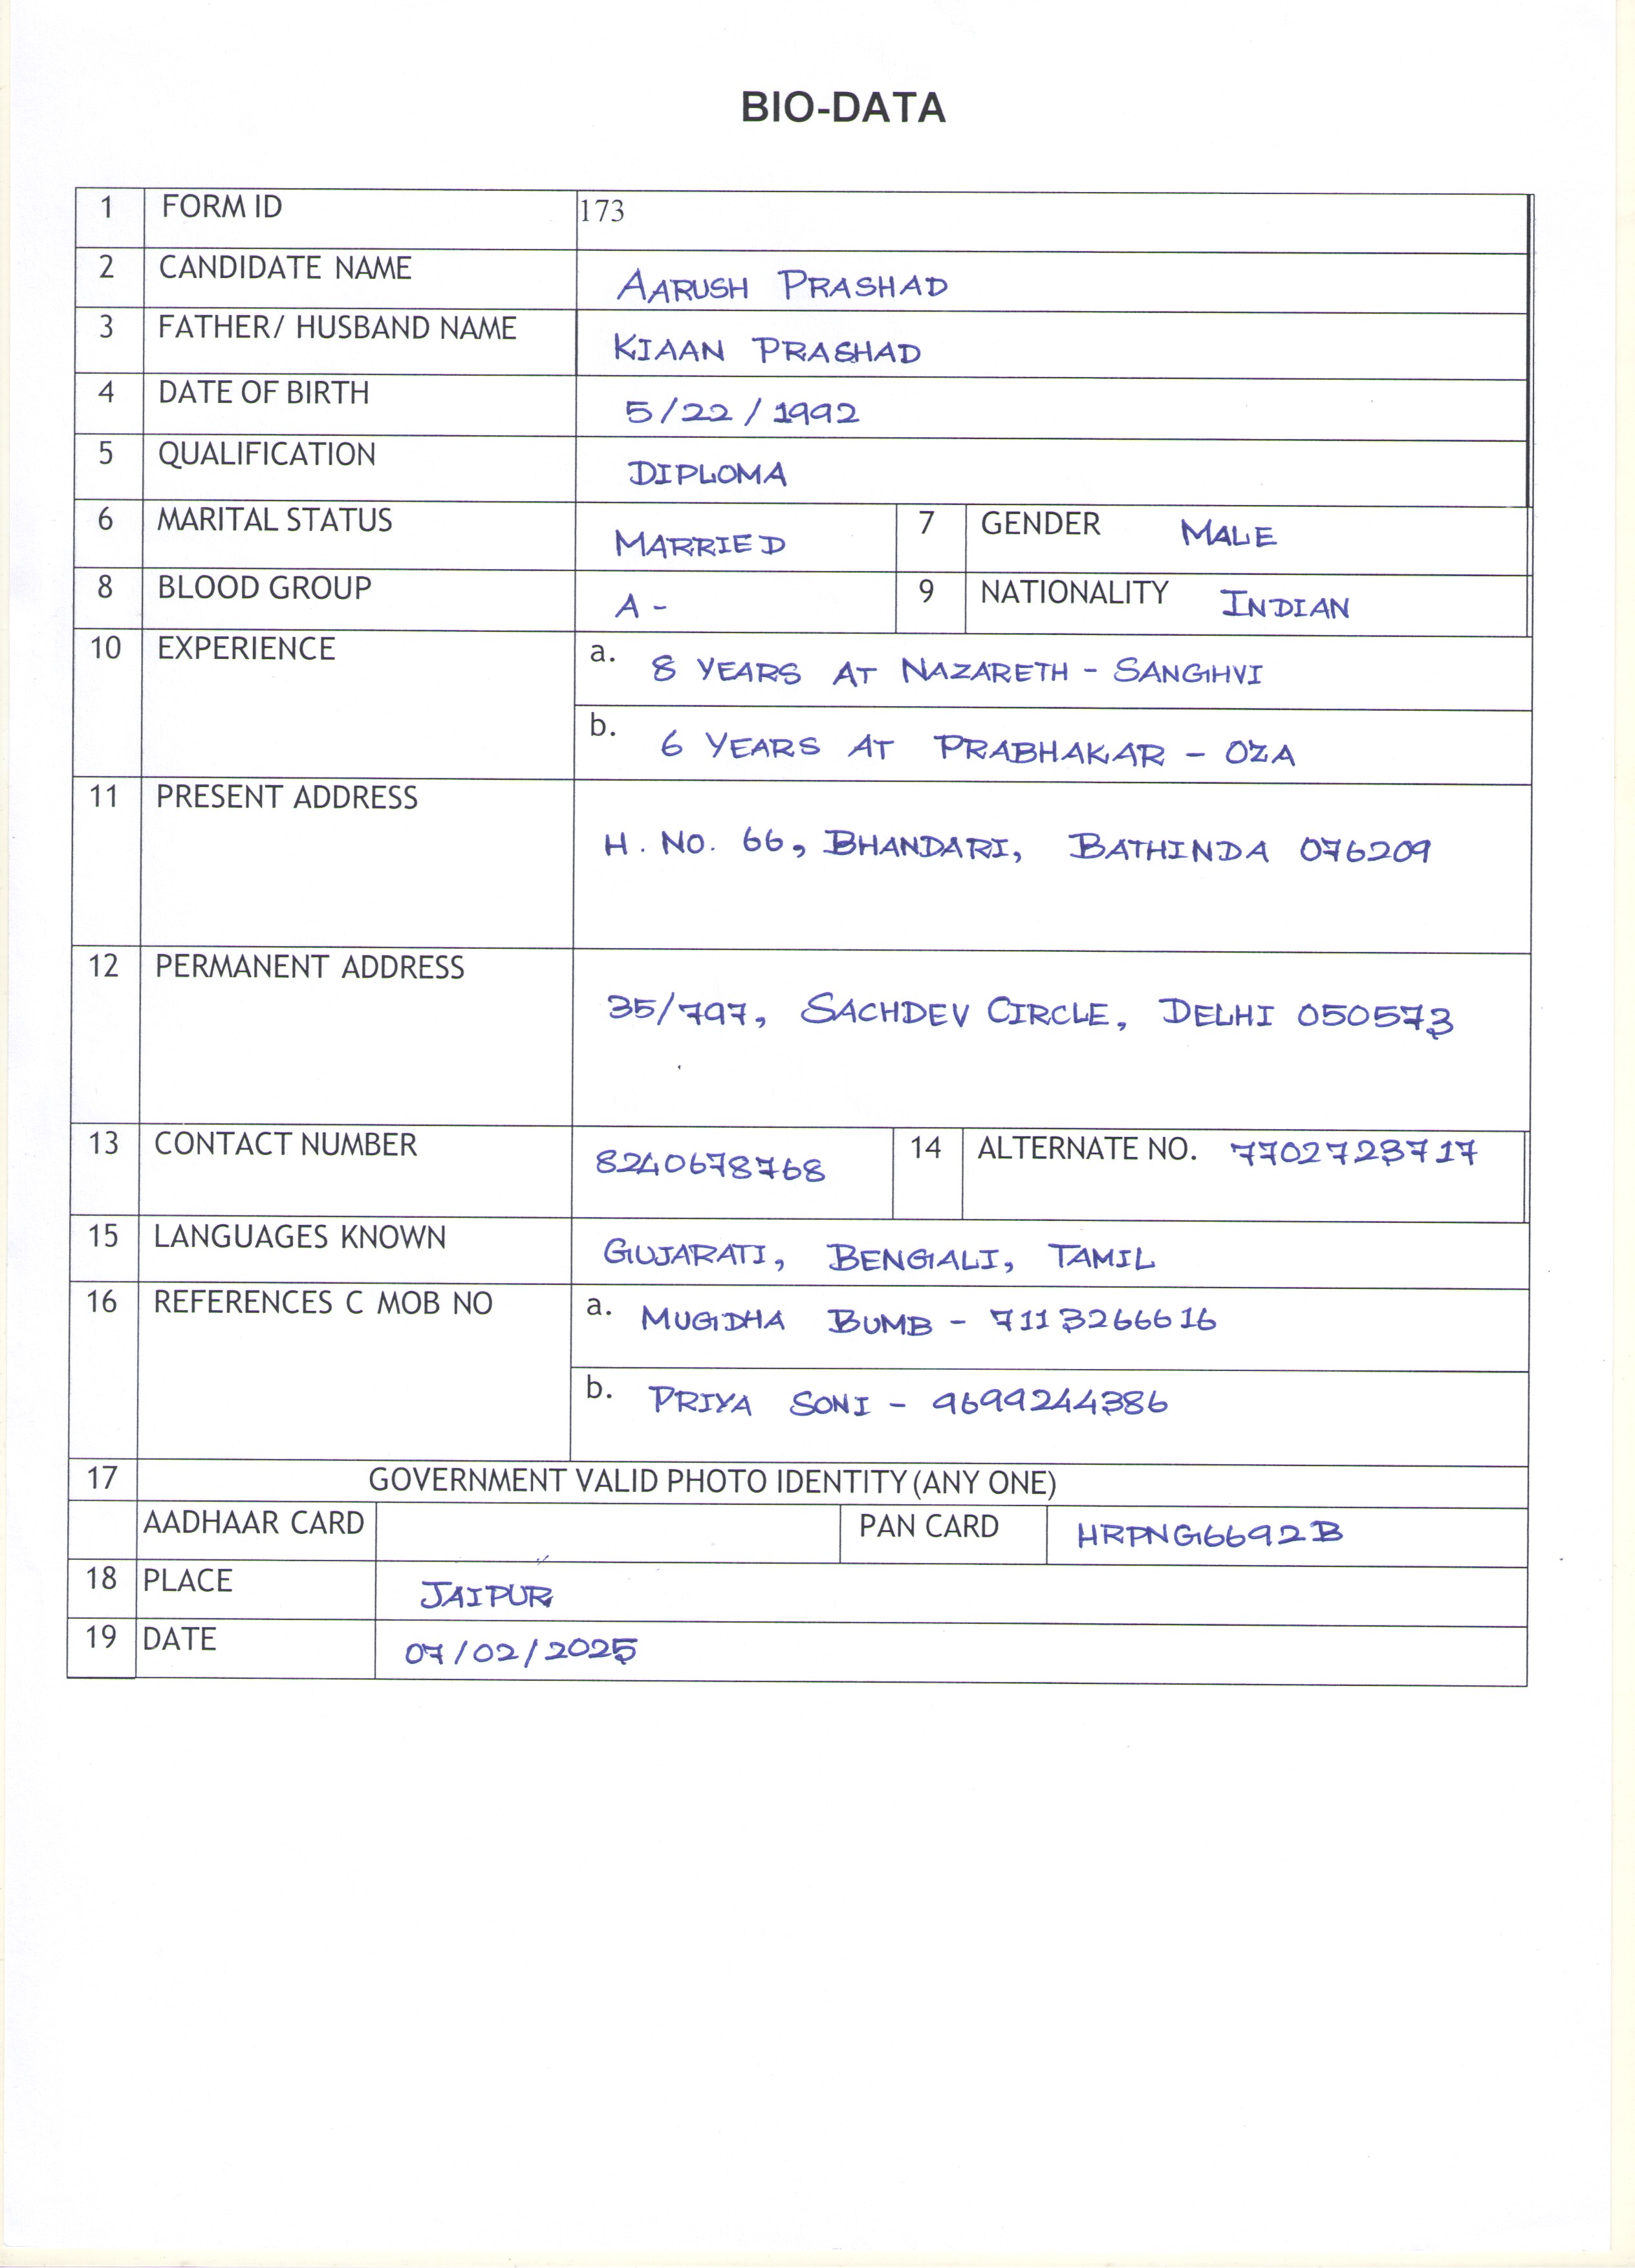 BIO-DATA
1 FORM ID 173
2 CANDIDATE NAME AARUSH PRASHAD
3 FATHER/ HUSBAND NAME KIAAN PRASHAD
4 DATE OF BIRTH 5/22/1992
5 QUALIFICATION DIPLOMA
6 MARITAL STATUS MARRIED 7 GENDER MALE
8 BLOOD GROUP A- 9 NATIONALITY INDIAN
10 EXPERIENCE a. 8 YEARS AT NAZARETH - SANGHVI
b. 6 YEARS AT PRABHAKAR - OZA
11 PRESENT ADDRESS H. NO. 66, BHANDARI, BATHINDA 076209
12 PERMANENT ADDRESS 35/797, SACHDEV CIRCLE, DELHI 050573
13 CONTACT NUMBER 8240678768 14 ALTERNATE NO. 7702723717
15 LANGUAGES KNOWN GUJARATI, BENGALI, TAMIL
16 REFERENCES C MOB NO a. MUGDHA BUMB - 7113266616
b. PRIYA SONI - 9699244386
17 GOVERNMENT VALID PHOTO IDENTITY (ANY ONE)
AADHAAR CARD PAN CARD HRPNG6692B
18 PLACE JAIPUR
19 DATE 07/02/2025